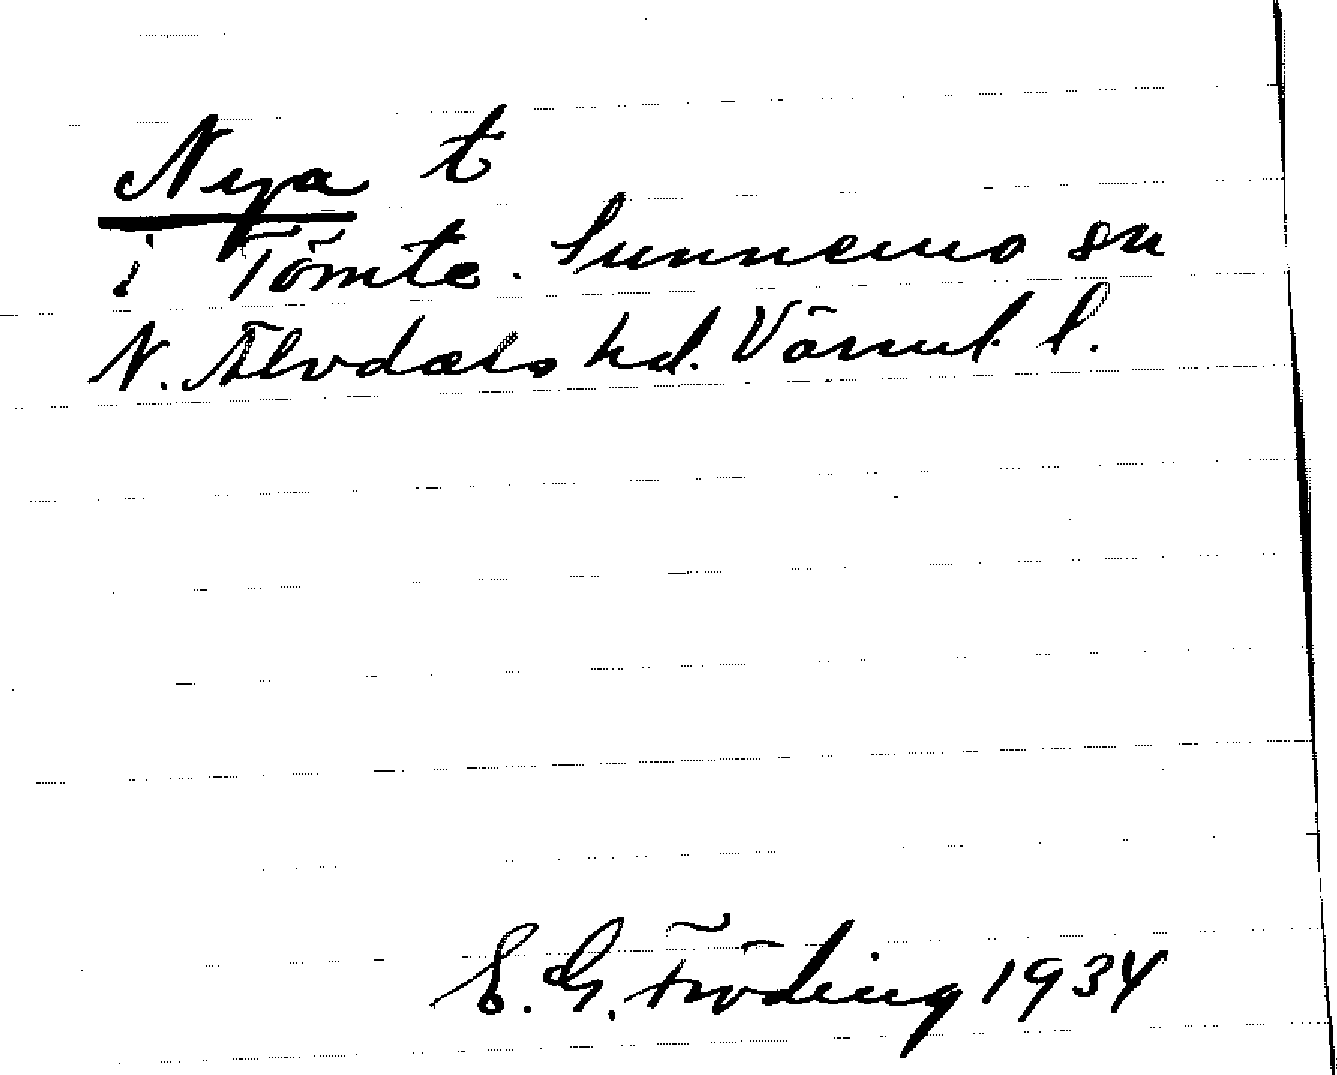 Nya t
i Tömte. Sunnemo sn
N. Älvdals hd. Värml. l.
E. G. Fröding 1934